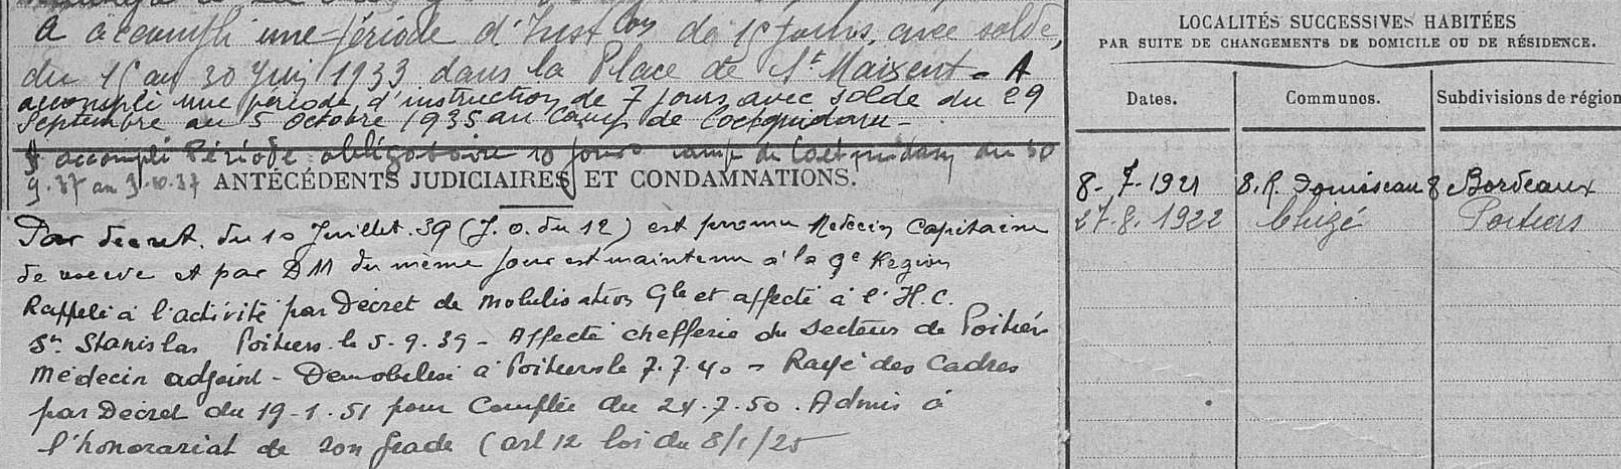 A accompli une période d'Inst^ion de 15 jours, avec solde,
du 16 au 30 Juin 1933 dans la Place de S^t Maixent - A
accompli une période d'instruction de 7 jours avec solde du 29
Septembre au 5 Octobre 1935 au Camp de Coetquidan -
A accompli Période obligatoire 10 jours camp de Coetquidan du 30
9.37 au 9.10.37 ANTÉCÉDENTS JUDICIAIRES ET CONDAMNATIONS.
Par décret du 10 Juillet 39 (J.O. du 12) est promu Médecin Capitaine
de réserve et par DM du même jour est maintenu à la 9e Région
Rappelé à l'activité par Décret de Mobilisation Gle et affecté à l'H.C.
St. Stanislas Poitiers le 5.9.39 - Affecté chefferie du Secteur de Poitiers
Médecin adjoint - Démobilisé à Poitiers le 7.7.40 - Rayé des Cadres
par Décret du 19-1.51 pour Compter du 24.7.50. Admis à
l'honorariat de son grade (art 12 loi du 8/1/25
LOCALITÉS SUCCESSIVES HABITÉES
PAR SUITE DE CHANGEMENTS DE DOMICILE OU DE RÉSIDENCE.
Dates. Communes. Subdivisions de région
8-7-1921 8.R. Bordeaux
27-8.1922 Chizé Poitiers